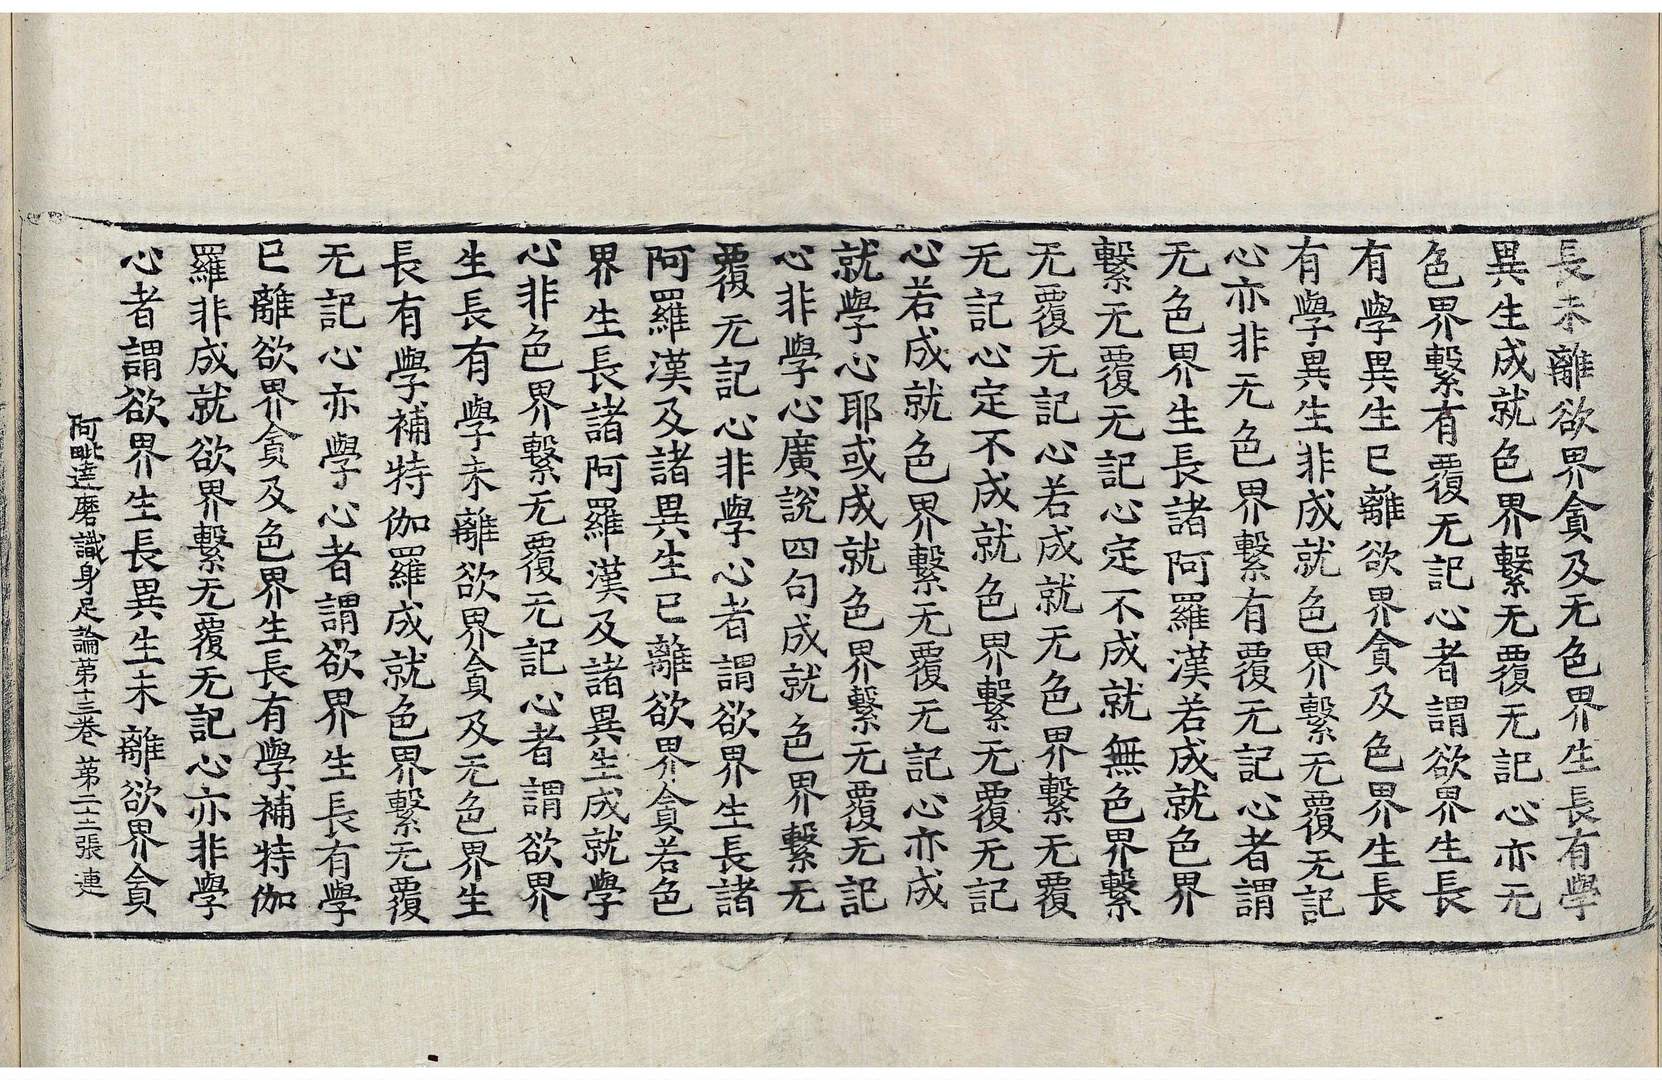 長未離欲界貪及无色界生長有學
異生成就色界繫无覆无記心亦无
色界繫有覆无記心者謂欲界生長
有學異生已離欲界貪及色界生長
有學異生非成就色界繫无覆无記
心亦非无色界繫有覆无記心者謂
无色界生長諸阿羅漢若成就色界
繫无覆无記心定不成就無色界繫
无覆无記心若成就无色界繫无覆
无記心定不成就色界繫无覆无記
心若成就色界繫无覆无記心亦成
就學心耶或成就色界繫无覆无記
心非學心廣說四句成就色界繫无
覆无記心非學心者謂欲界生長諸
阿羅漢及諸異生已離欲界貪若色
界生長諸阿羅漢及諸異生成就學
心非色界繫无覆无記心者謂欲界
生長有學未離欲界貪及无色界生
長有學補特伽羅成就色界繫无覆
无記心亦學心者謂欲界生長有學
已離欲界貪及色界生長有學補特伽
羅非成就欲界繫无覆无記心亦非學
心者謂欲界生長異生未離欲界貪
阿毗達磨識身足論第十三卷 第二十二張 連